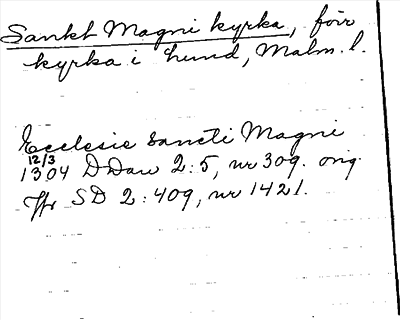 Sankt Magni kyrka, förr
kyrka i Lund, Malm. l.
Ecclesie Sancti Magni
12/3
1304 DDan 2:5, nr 309. orig.
Jfr SD 2:409, nr 1421.